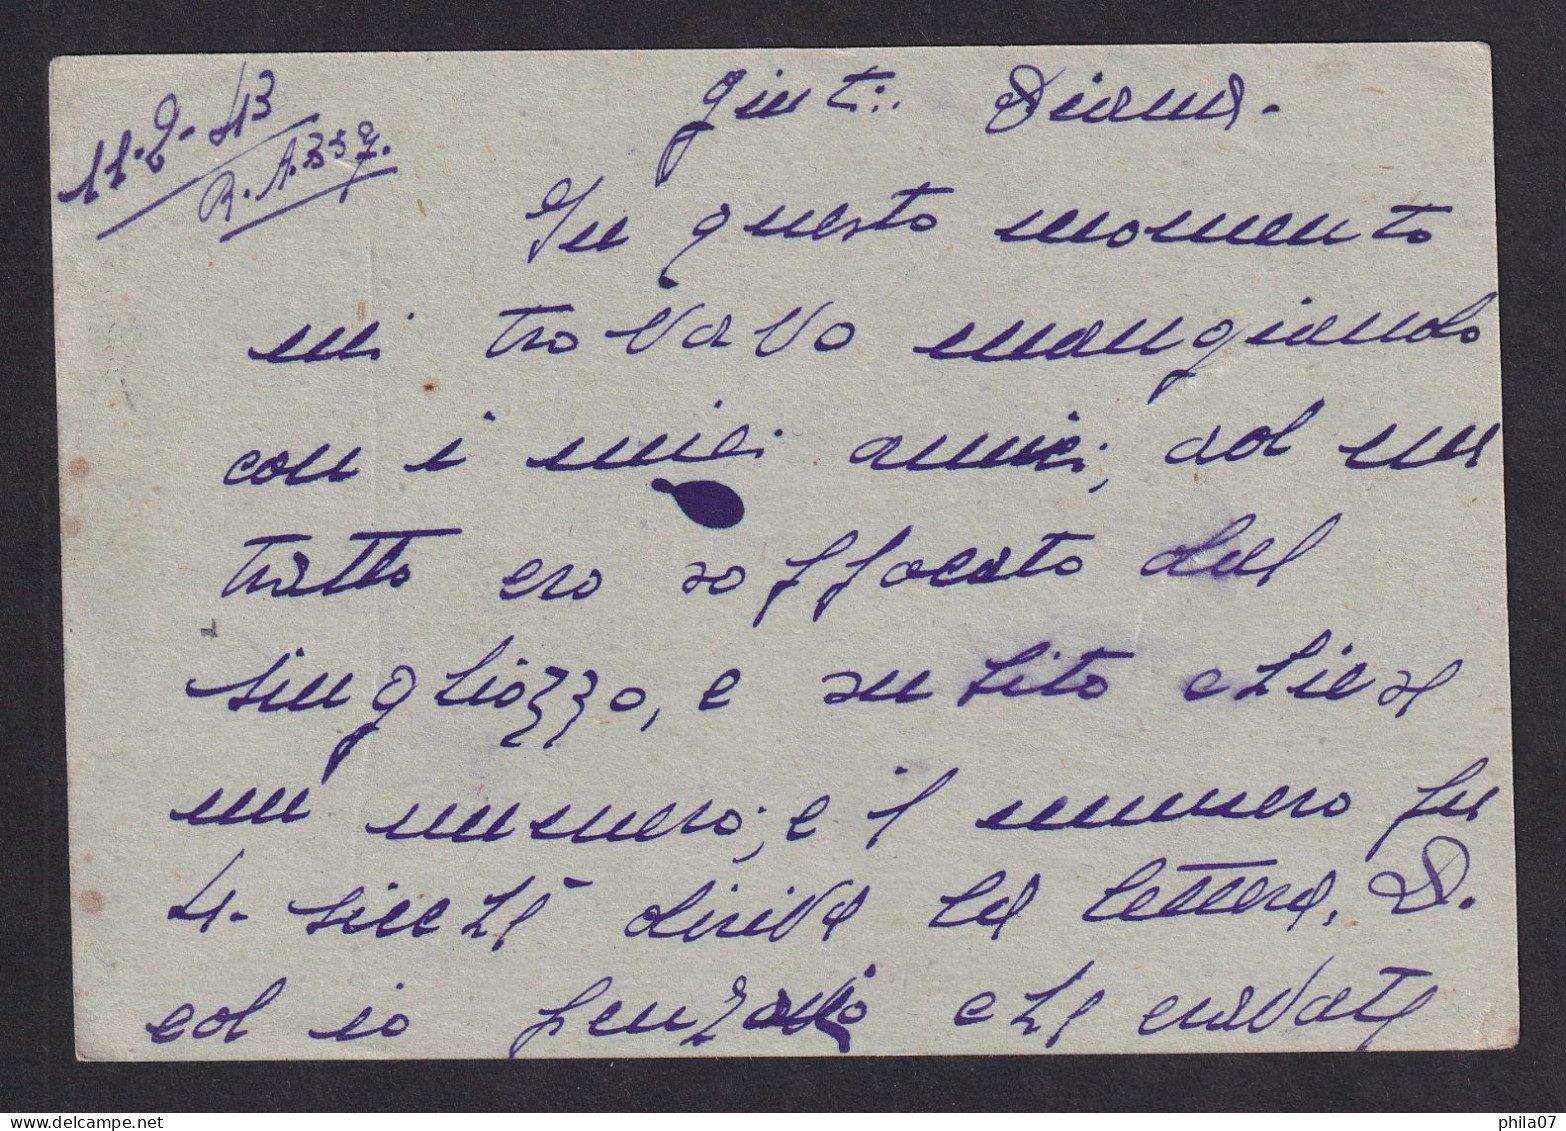 11-2-43
R.A. 337.
Gent:. Diana.
In questo momento
mi trovavo mangiando
con i miei amici, ad un
tratto ero soffocato dal
singhiozzo, e subito chiese
un numero, e il numero fu
4. sicchè diriva la lettera, D.
ed io penzavo che eravate
phila07